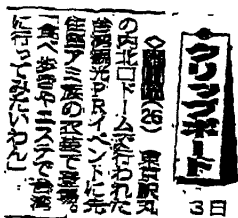 クリップボード
3日
(26) 東京駅丸
の内北口ドームで行われた
台湾観光PRイベントに先
住民アミ族の衣装で登場。
「食べ歩きやエステで台湾
に行ってみたいわん」